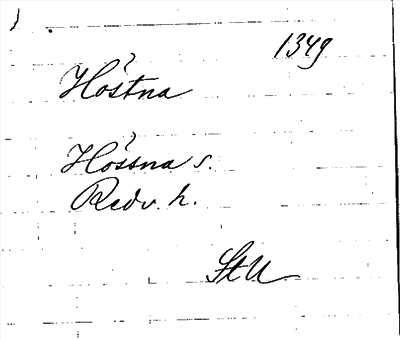 1349
Höstna
Hössna s.
Redv. h.
StU